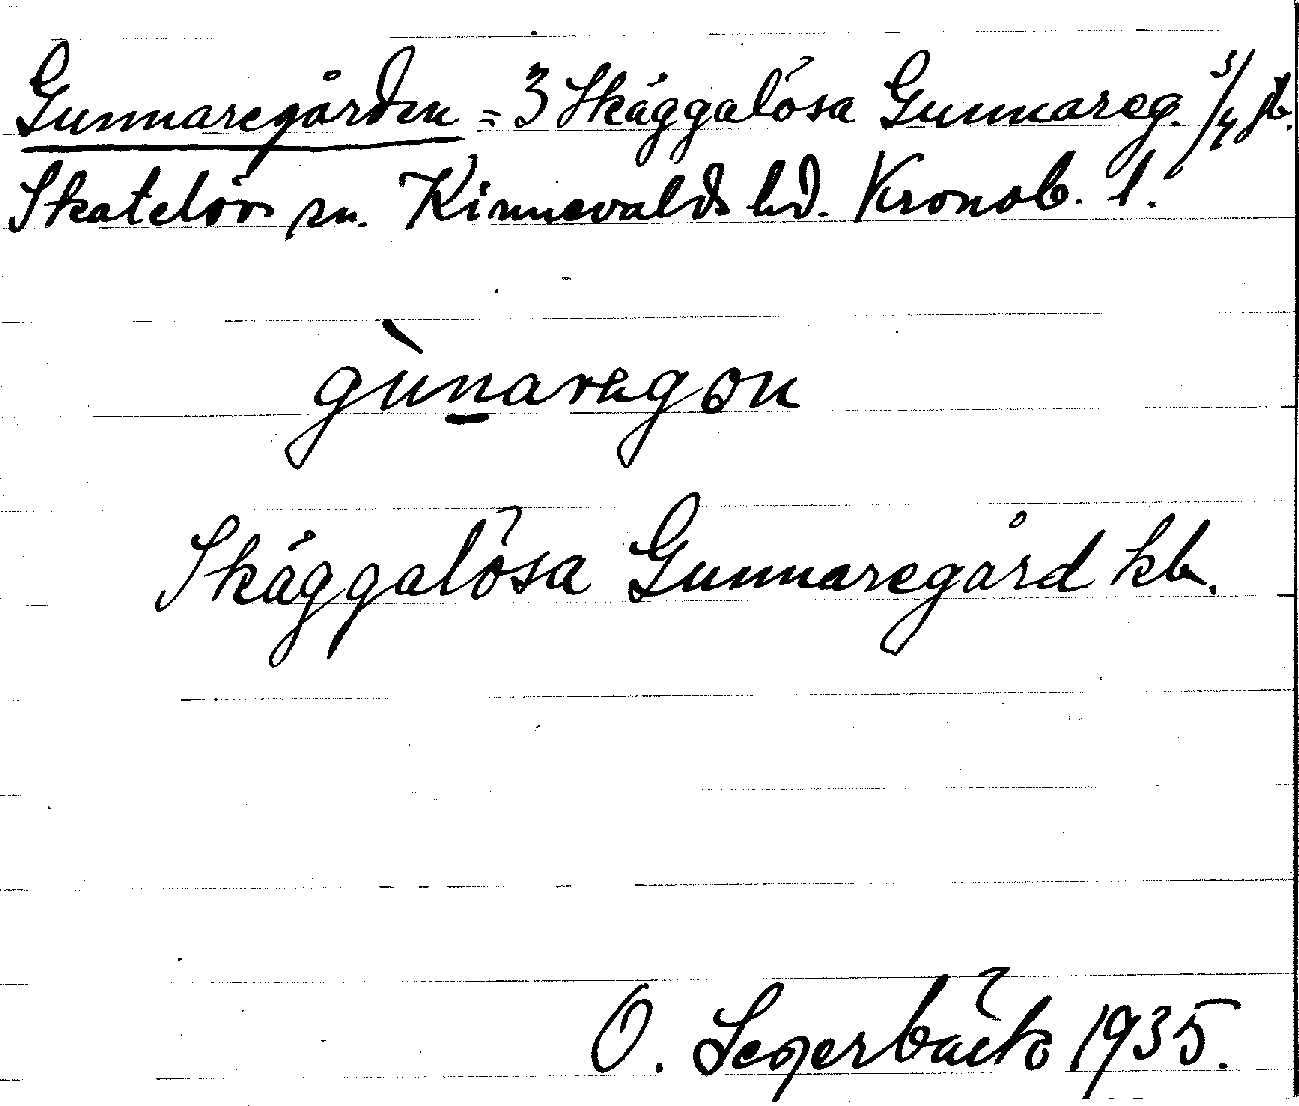 Gunnaregården = 3 Skäggalösa Gunnareg. 3/4 jb.
Skatelövs sn. Kinnevalds hd. Kronob. l.
gùn̲aregɔn
Skäggalösa Gunnaregård kb.
O. Segerbäck 1935.